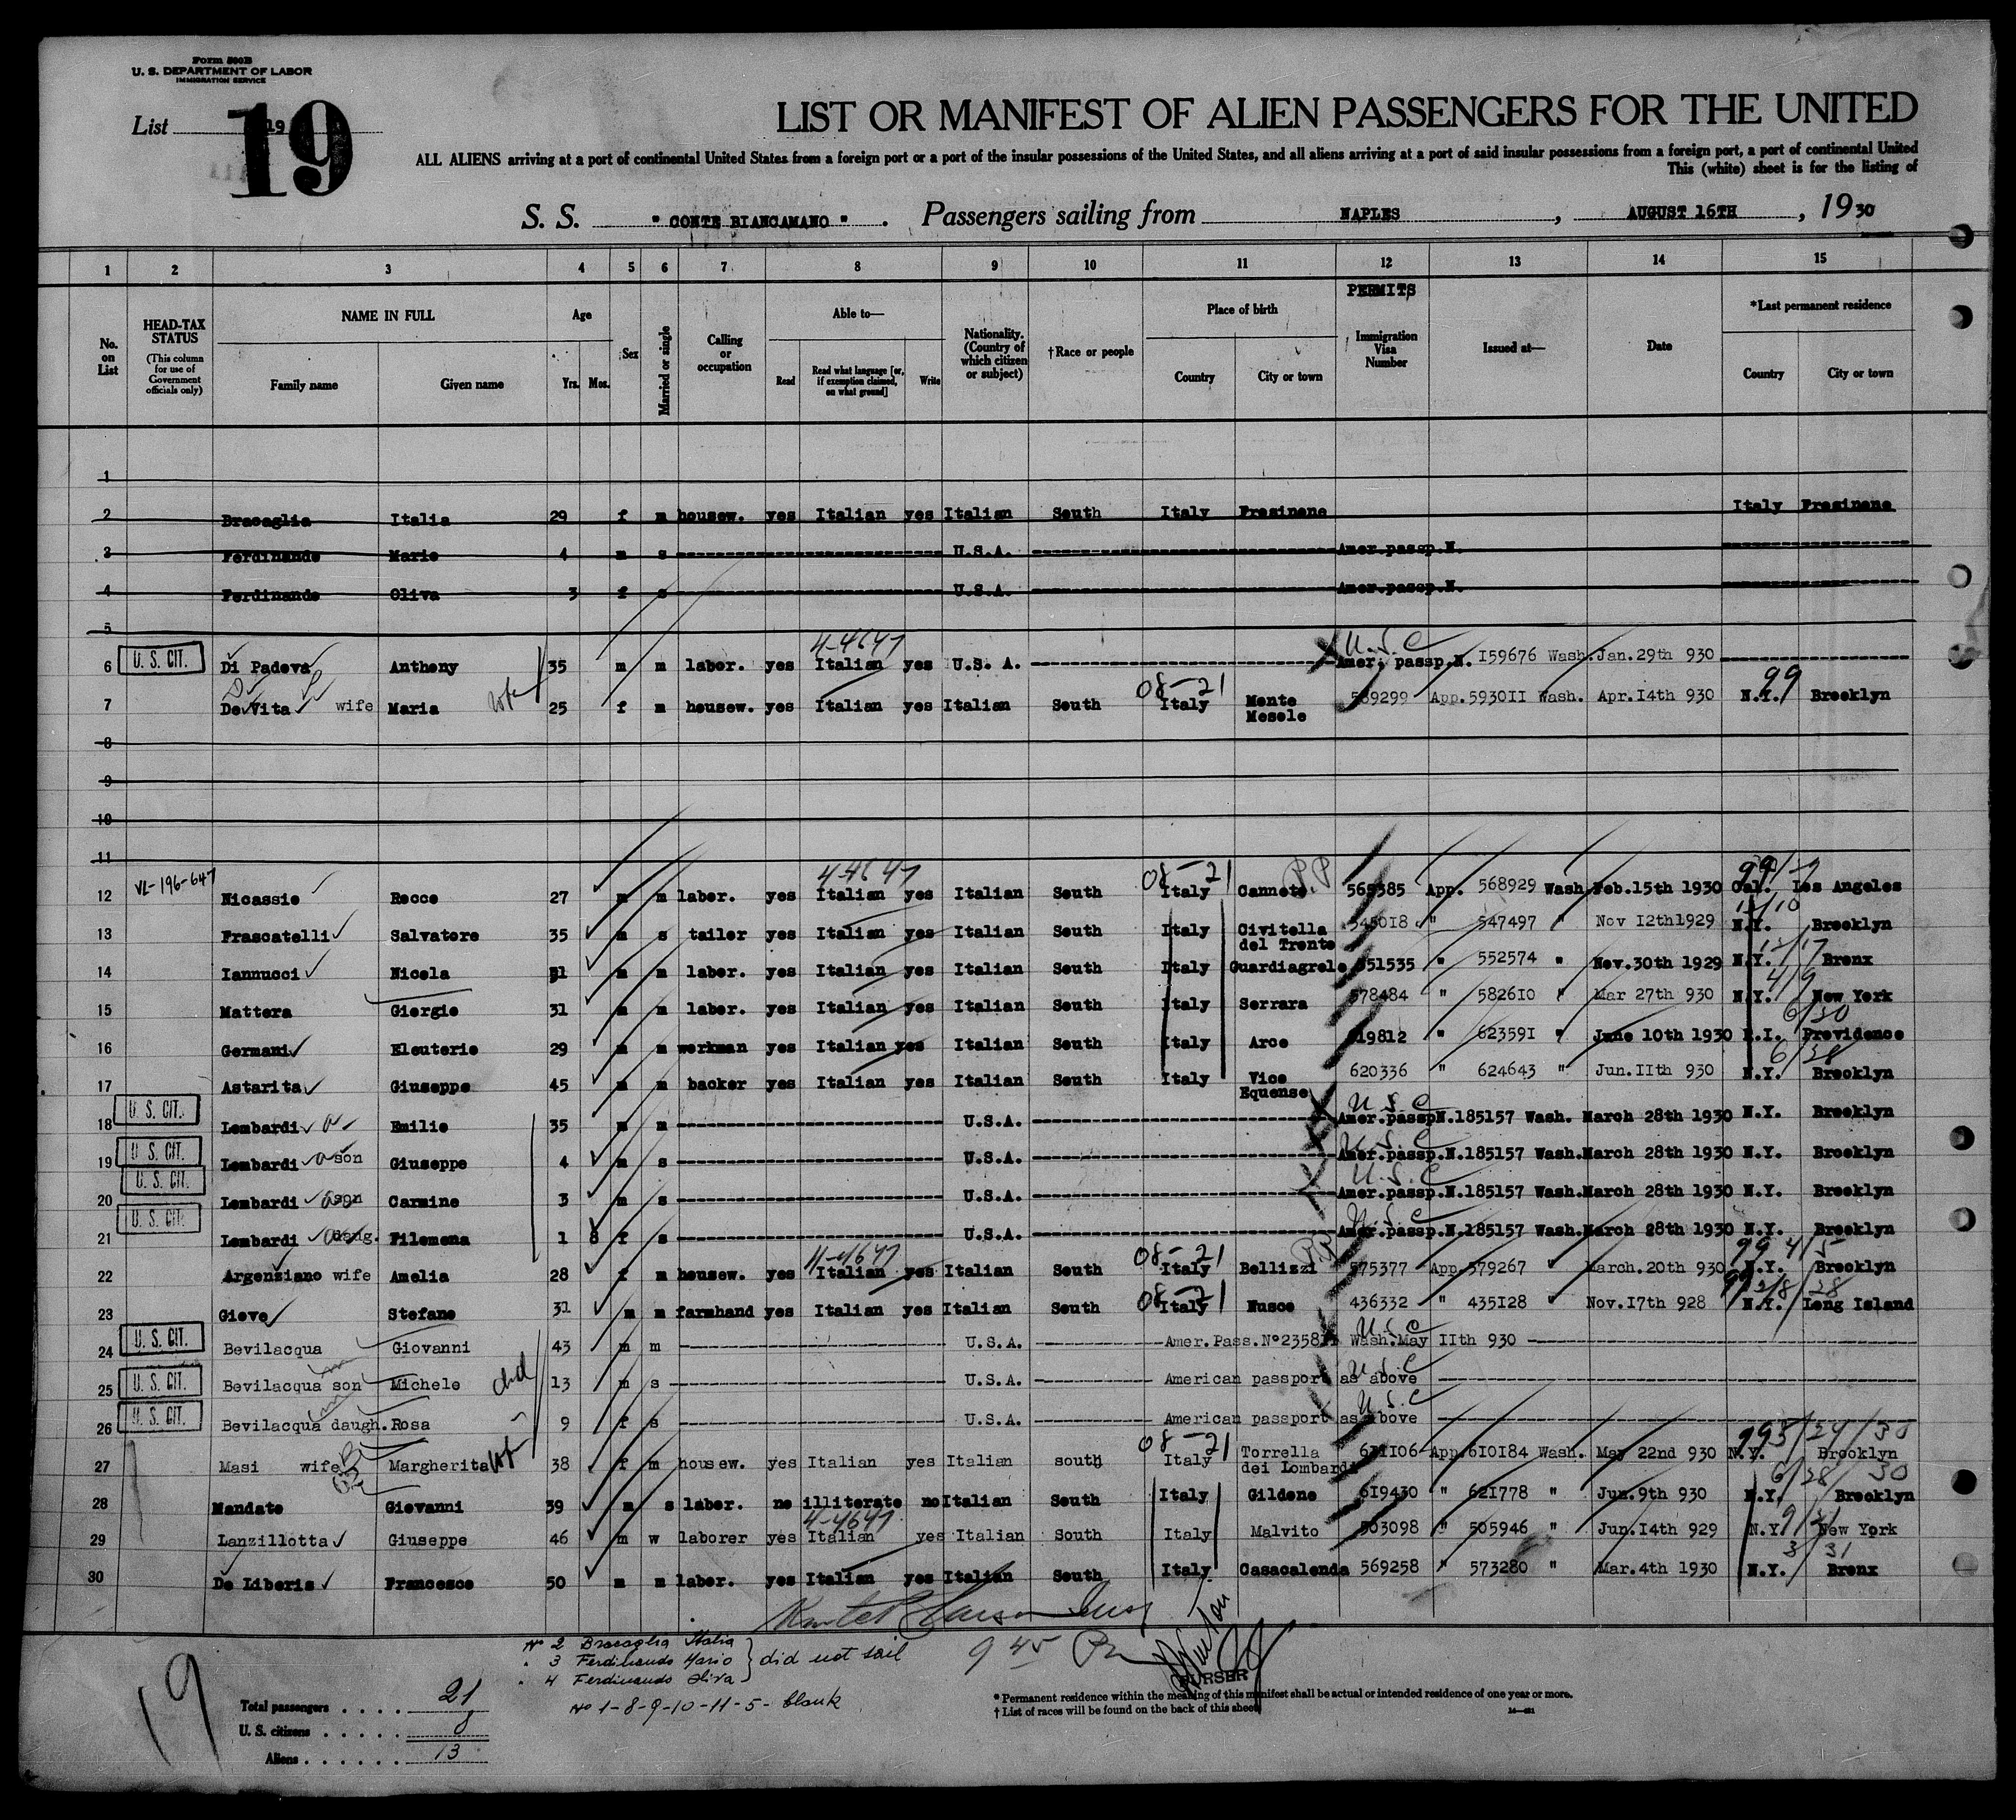 Form 500B
U. S. DEPARTMENT OF LABOR
IMMIGRATION SERVICE
List 19
19
LIST OR MANIFEST OF ALIEN PASSENGERS FOR THE UNITED
ALL ALIENS arriving at a port of continental United States from a foreign port or a port of the insular possessions of the United States, and all aliens arriving at a port of said insular possessions from a foreign port, a port of continental United
This (white) sheet is for the listing of
S. S. " CONTE BIANCAMANO " . Passengers sailing from NAPLES , AUGUST 16TH , 1930
1 2 3 4 5 6 7 8 9 10 11 12 13 14 15
No. on List
HEAD-TAX STATUS (This column for use of Government officials only)
NAME IN FULL Family name Given name
Age Yrs. Mos.
Sex
Married or single
Calling or occupation
Able to— Read Read what language [or, if exemption claimed, on what ground] Write
Nationality. (Country of which citizen or subject)
†Race or people
Place of birth Country City or town
PERMITS
Immigration Visa Number
Issued at—
Date
*Last permanent residence Country City or town
1
2 Bracaglia Italia 29 f m housew. yes Italian yes Italian South Italy Frosinone Italy Frosinone
3 Ferdinando Mario 4 m s U.S.A. Amer.passp.N.
4 Ferdinando Oliva 3 f s U.S.A. Amer.passp.N.
5
4-4647 U.S.C
6 U. S. CIT. Di Padova Anthony 35 m m labor. yes Italian yes U.S. A. Amer. passp.N. 159676 Wash. Jan.29th 930
08-21 99
7 De Vita wife Maria wife 25 f m housew. yes Italian yes Italian South Italy Monte Mesole 589299 App.593011 Wash. Apr.14th 930 N.Y. Brooklyn
8
9
10
11
4-4647 08-21 P.P 99
12 VL-196-647 Nicassio Rocco 27 m m labor. yes Italian yes Italian South Italy Canneto 565385 App. 568929 Wash. Feb.15th 1930 Cal. Los Angeles
13 Frascatelli Salvatore 35 m s tailor yes Italian yes Italian South Italy Civitella del Tronto 545018 " 547497 " Nov 12th1929 N.Y. Brooklyn
14 Iannucci Nicola 31 m m labor. yes Italian yes Italian South Italy Guardiagrele 551535 " 552574 " Nov.30th 1929 N.Y. Bronx
15 Mattera Giorgio 31 m m labor. yes Italian yes Italian South Italy Serrara 578484 " 582610 " Mar 27th 930 N.Y. New York
16 Germani Eleuterio 29 m m workman yes Italian yes Italian South Italy Arce 619812 " 623591 " June 10th 1930 R.I. Providence
17 Astarita Giuseppe 45 m m backer yes Italian yes Italian South Italy Vico Equense 620336 " 624643 " Jun.11th 930 N.Y. Brooklyn
U.S.C
18 U. S. CIT. Lombardi Emilio 35 m m U.S.A. Amer.passpN.185157 Wash. March 28th 1930 N.Y. Brooklyn
U.S.C
19 U. S. CIT. Lombardi son Giuseppe 4 m s U.S.A. Amer.passp.N.185157 Wash.March 28th 1930 N.Y. Brooklyn
U.S.C
20 U. S. CIT. Lombardi son Carmine 3 m s U.S.A. Amer.passp.N.185157 Wash.March 28th 1930 N.Y. Brooklyn
U.S.C
21 U. S. CIT. Lombardi daug. Filomena 1 8 f s U.S.A. Amer.passp.N.185157 Wash.March 28th 1930 N.Y. Brooklyn
4-4647 08-21 99 4/5
22 Argenziano wife Amelia 28 f m housew. yes Italian yes Italian South Italy Bellizzi 575377 App.579267 " March.20th 930 N.Y. Brooklyn
08-21
23 Giove Stefano 31 m m farmhand yes Italian yes Italian South Italy Nusco 436332 " 435128 " Nov.17th 928 N.Y. Long Island
U.S.C
24 U. S. CIT. Bevilacqua Giovanni 43 m m U.S.A. Amer.Pass.Nº Wash.May 11th 930
U.S.C
25 U. S. CIT. Bevilacqua son Michele chd 13 m s U.S.A. American passport as above
U.S.C
26 U. S. CIT. Bevilacqua daugh. Rosa 9 f s U.S.A. American passport as above
08-21 99 5/24/30
27 Masi wife Margherita wife 38 f m housew. yes Italian yes Italian south Italy Torrella dei Lombardi 611106 App.610184 Wash. May 22nd 930 N.Y. Brooklyn
6/28/30
28 Mandato Giovanni 39 m s labor. no illiterate no Italian South Italy Gildone 619430 " 621778 " Jun.9th 930 N.Y. Brooklyn
4-4647
29 Lanzillotta Giuseppe 46 m w laborer yes Italian yes Italian South Italy Malvito 503098 " 505946 " Jun.14th 929 N.Y. New York
30 De Liberis Francesco 50 m m labor. yes Italian yes Italian South Italy Casacalenda 569258 " 573280 " Mar.4th 1930 N.Y. Bronx
Nº 2 Bracaglia Italia
" 3 Ferdinando Mario } did not sail
" 4 Ferdinando Oliva
Nº 1-8-9-10-11-5- blank
9 45
PURSER
19
Total passengers 21
U. S. citizens 8
Aliens 13
* Permanent residence within the meaning of this manifest shall be actual or intended residence of one year or more.
† List of races will be found on the back of this sheet.